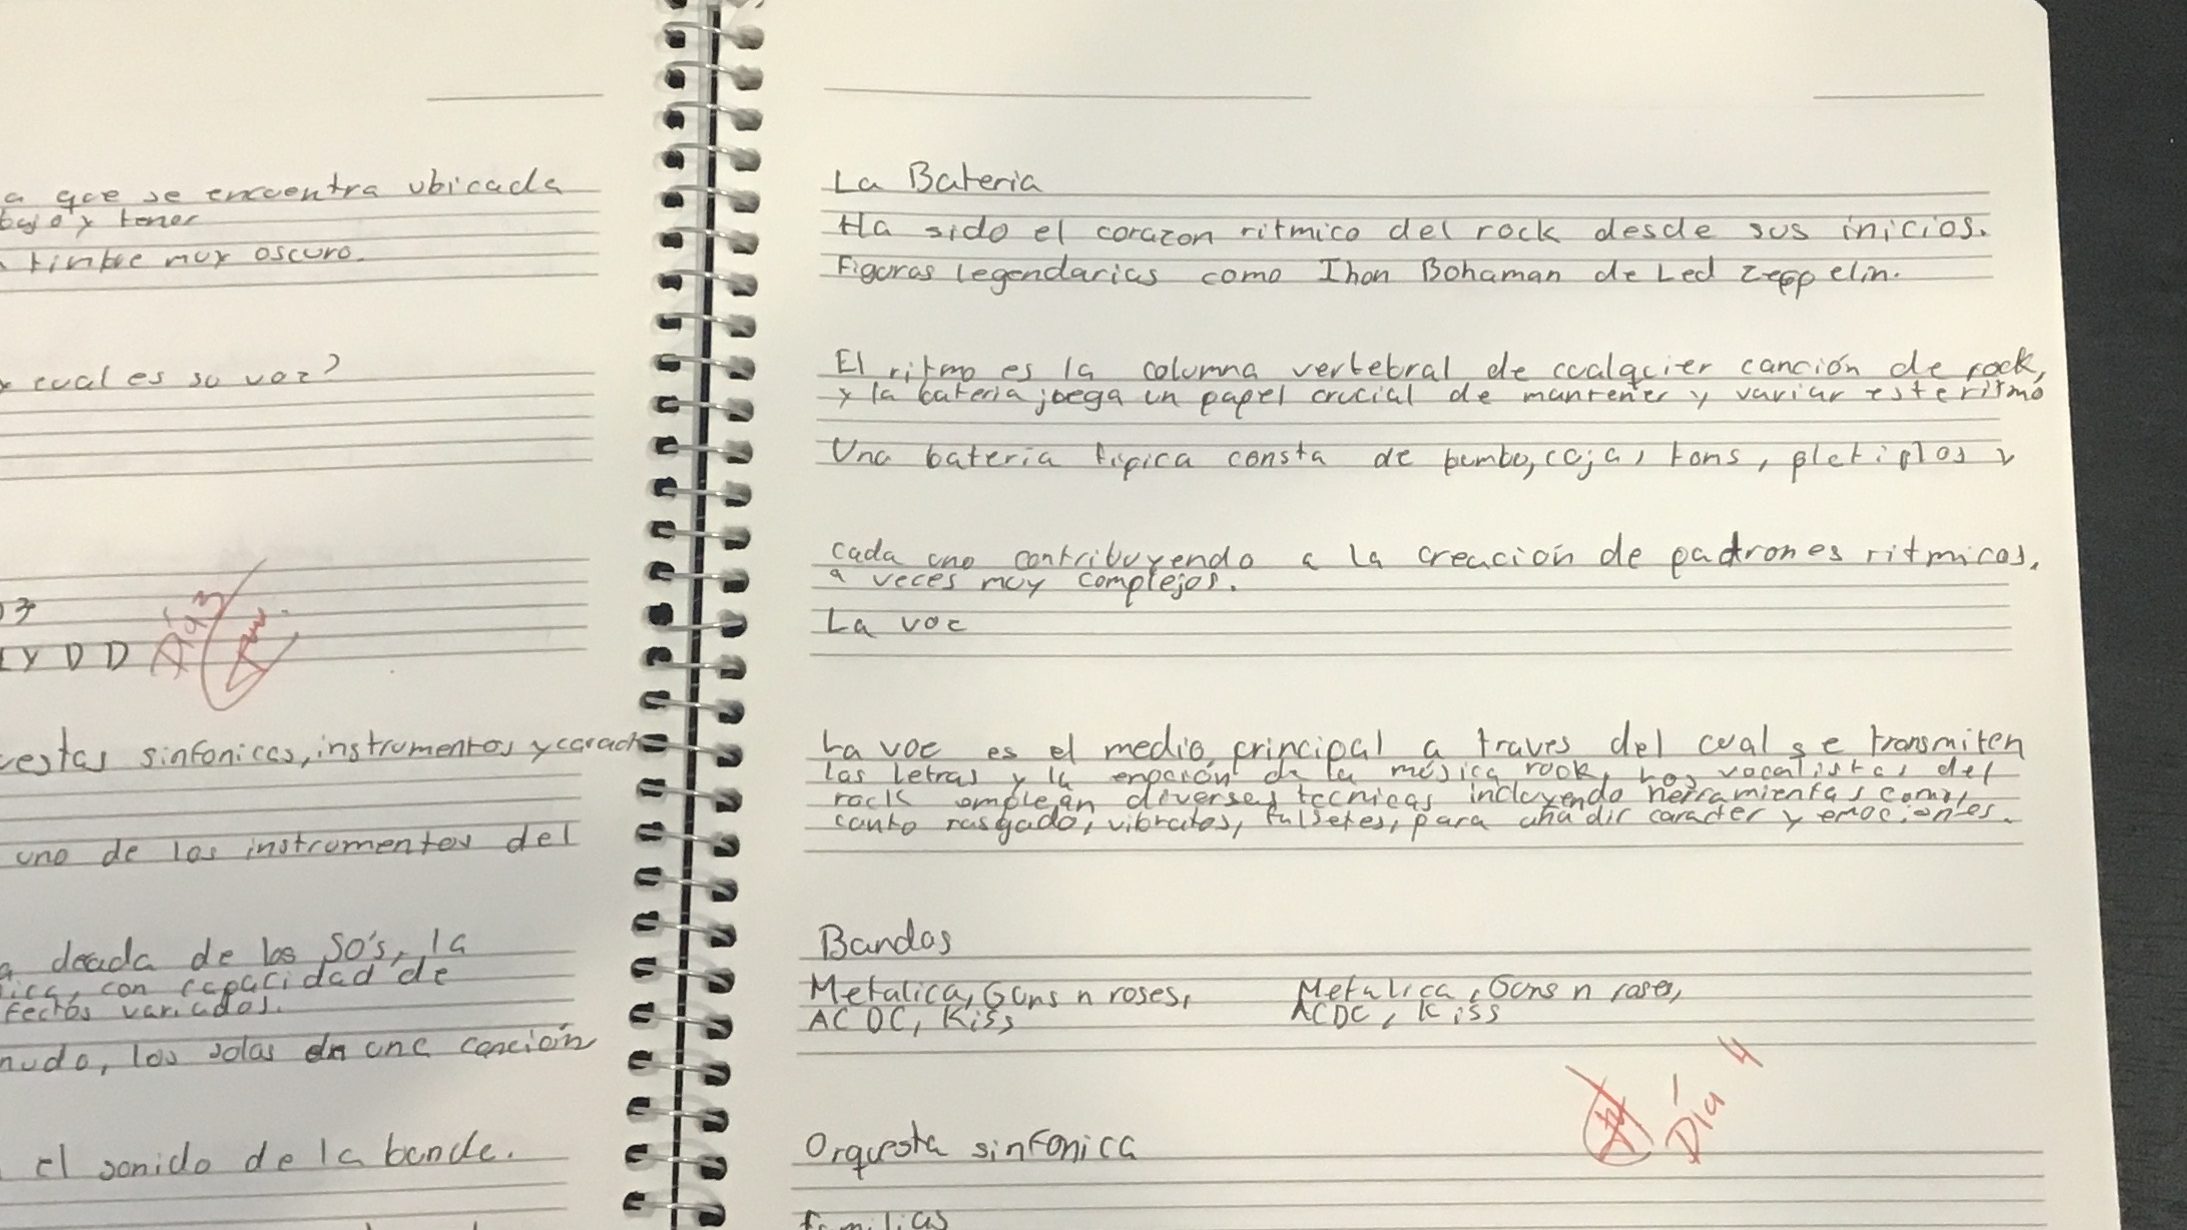 a que se encuentra ubicada
bajo y tener
timbre muy oscuro.
cual es su voz?
03
Y D D
Día 3
uestas sinfonicas, instrumentos y caract
uno de los instrumentos del
a deada de los 50's, la
ica, con capacidad de
fectos variados.
nudo, los solas en una canción
el sonido de la banda.
La Bateria
Ha sido el corazon ritmico del rock desde sus inicios.
Figuras legendarias como Jhon Bohaman de Led Zeppelin.
El ritmo es la columna vertebral de cualquier canción de rock,
y la bateria juega un papel crucial de mantener y variar este ritmo
Una bateria tipica consta de bombo, caja, toms, pletiplos y
cada uno contribuyendo a la creación de padrones ritmicos,
a veces muy complejos.
La voz
La voz es el medio principal a traves del cual se transmiten
las letras y la emoción de la música rook, Los vocalistas del
rock emplean diversas tecnicas incluyendo herramientas como,
canto rasgado, vibratos, fulsetes, para añadir caracter y emociones.
Bandas
Metalica, Guns n roses,
ACDC, Kiss
Metalica, Guns n roses,
ACDC, Kiss
Día 4
Orquesta sinfonica
familias